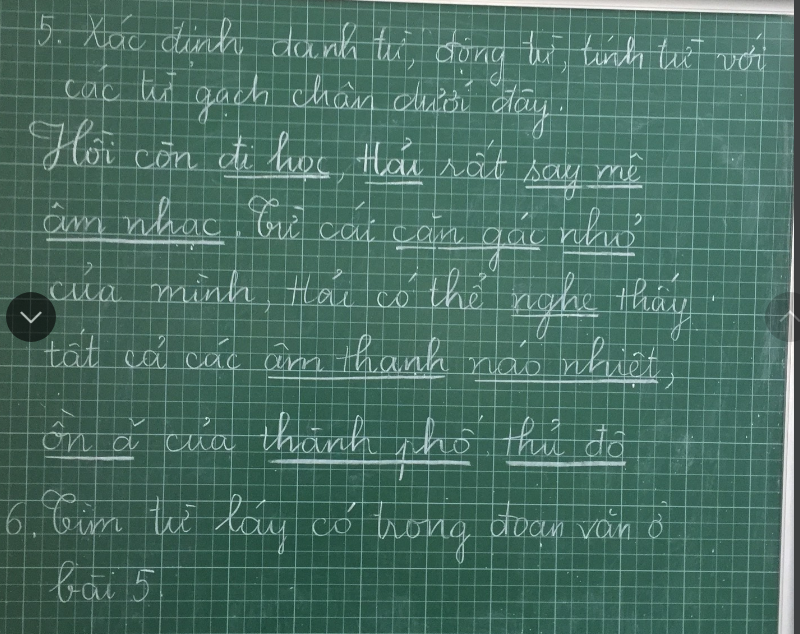 5. Xác định danh từ, động từ, tính từ với
các từ gạch chân dưới đây.
Hồi còn đi học, Hải rất say mê
âm nhạc. Từ cái căn gác nhỏ
của mình, Hải có thể nghe thấy
tất cả các âm thanh náo nhiệt,
ồn ã của thành phố thủ đô
6. Tìm từ láy có trong đoạn văn ở
bài 5